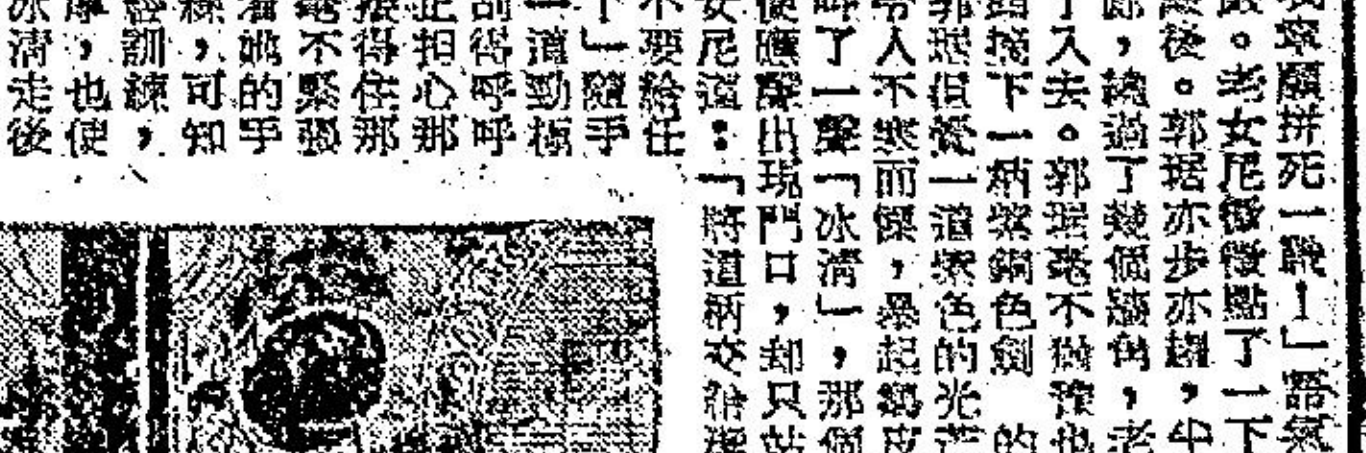 寧願拼死一戰！」語氣
。老女尼微微點了一下
後。郭琚亦步亦趨，
，繞過了幾個牆角，老
了入去。郭珉毫不猶豫也
摘下一柄紫銅色劍 的
郭珉但覺一道紫色的光芒
令人不寒而慄，暴起雞皮
了一聲「冰清」，那個
便應聲出現門口，却只站
女尼道：「將這柄交給
不要給任
下」隨手
一道勁極
得呼呼
正担心那
接得住那
毫不緊張
着她的手
練，可知
經訓練，
，也使
冰清走後